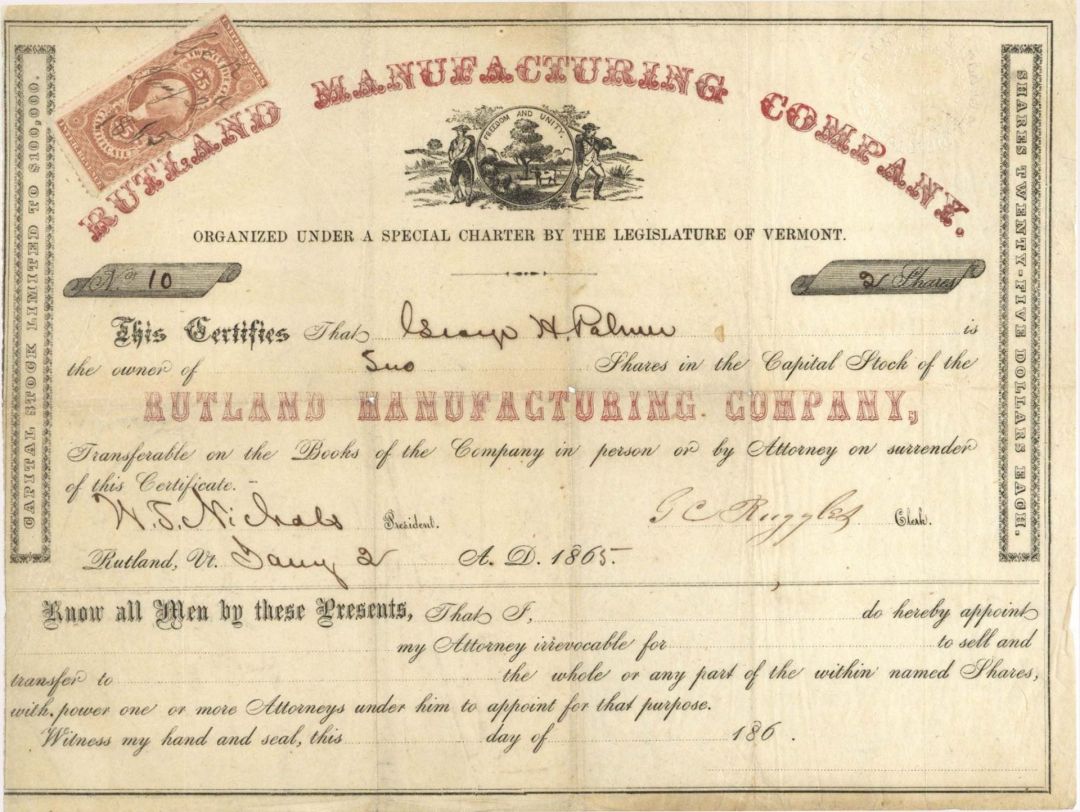 RUTLAND MANUFACTURING COMPANY.
FREEDOM AND UNITY.
CAPITAL STOCK LIMITED TO $100,000.
SHARES TWENTY-FIVE DOLLARS EACH.
25
ORGANIZED UNDER A SPECIAL CHARTER BY THE LEGISLATURE OF VERMONT.
No 10
2 Shares
This Certifies That George H. Palmer is
the owner of Two Shares in the Capital Stock of the
RUTLAND MANUFACTURING COMPANY,
Transferable on the Books of the Company in person or by Attorney on surrender
of this Certificate.
W. T. Nichols President. G C Ruggles Clerk.
Rutland, Vt. Jany 2 A. D. 1865.
Know all Men by these Presents, That I, do hereby appoint
my Attorney irrevocable for to sell and
transfer to the whole or any part of the within named Shares,
with power one or more Attorneys under him to appoint for that purpose.
Witness my hand and seal, this day of 186 .